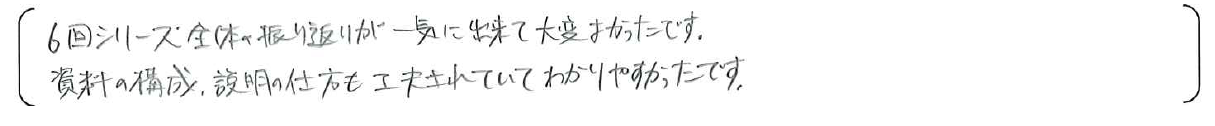 6回シリーズ全体の振り返りが一気に出来て大変よかったです。
資料の構成、説明の仕方も工夫されていてわかりやすかったです。